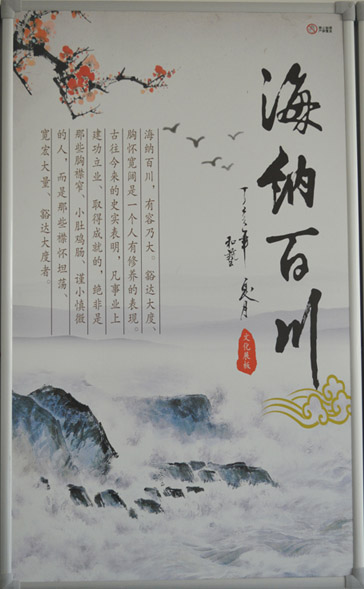 海纳百川
文化展板
海纳百川，有容乃大。豁达大度、
胸怀宽阔是一个人有修养的表现。
古往今来的史实表明，凡事业上
建功立业、取得成就的，绝非是
那些胸襟窄、小肚鸡肠、谨小慎微
的人，而是那些襟怀坦荡、
宽宏大量、豁达大度者。